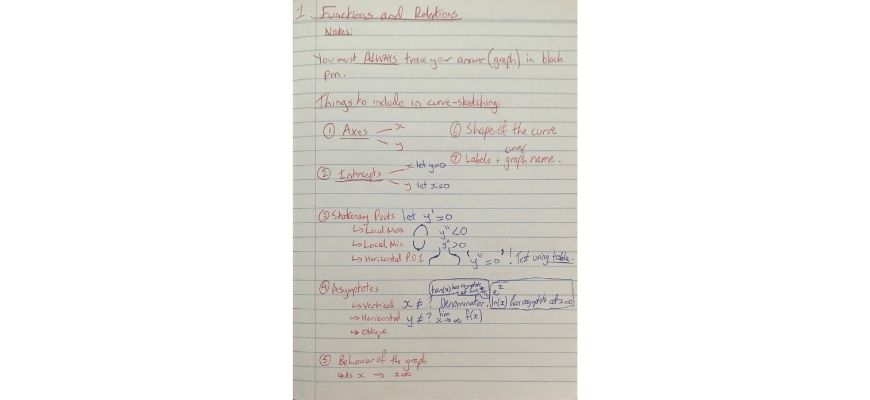 1. Functions and Relations
Notes:
You must ALWAYS trace your answer (graph) in black
pen.
Things to include in curve-sketching:
① Axes x
y
② Intercepts x let y=0
y let x=0
③ Stationary Points let y'=0
↳ Local Max y''<0
↳ Local Min y''>0
↳ Horizontal P.O.I 'y''=0'! Test using table.
④ Asymptotes
tan(x) has asymptote
↳ Vertical x ≠ ? Denominator.
e^x
ln(x) has asymptote at x=0
↳ Horizontal y ≠ ? lim x→∞ f(x)
↳ Oblique
⑤ Behavior of the graph
↳ As x → ±∞
⑥ Shape of the curve
⑦ Labels + graph name.
curve/